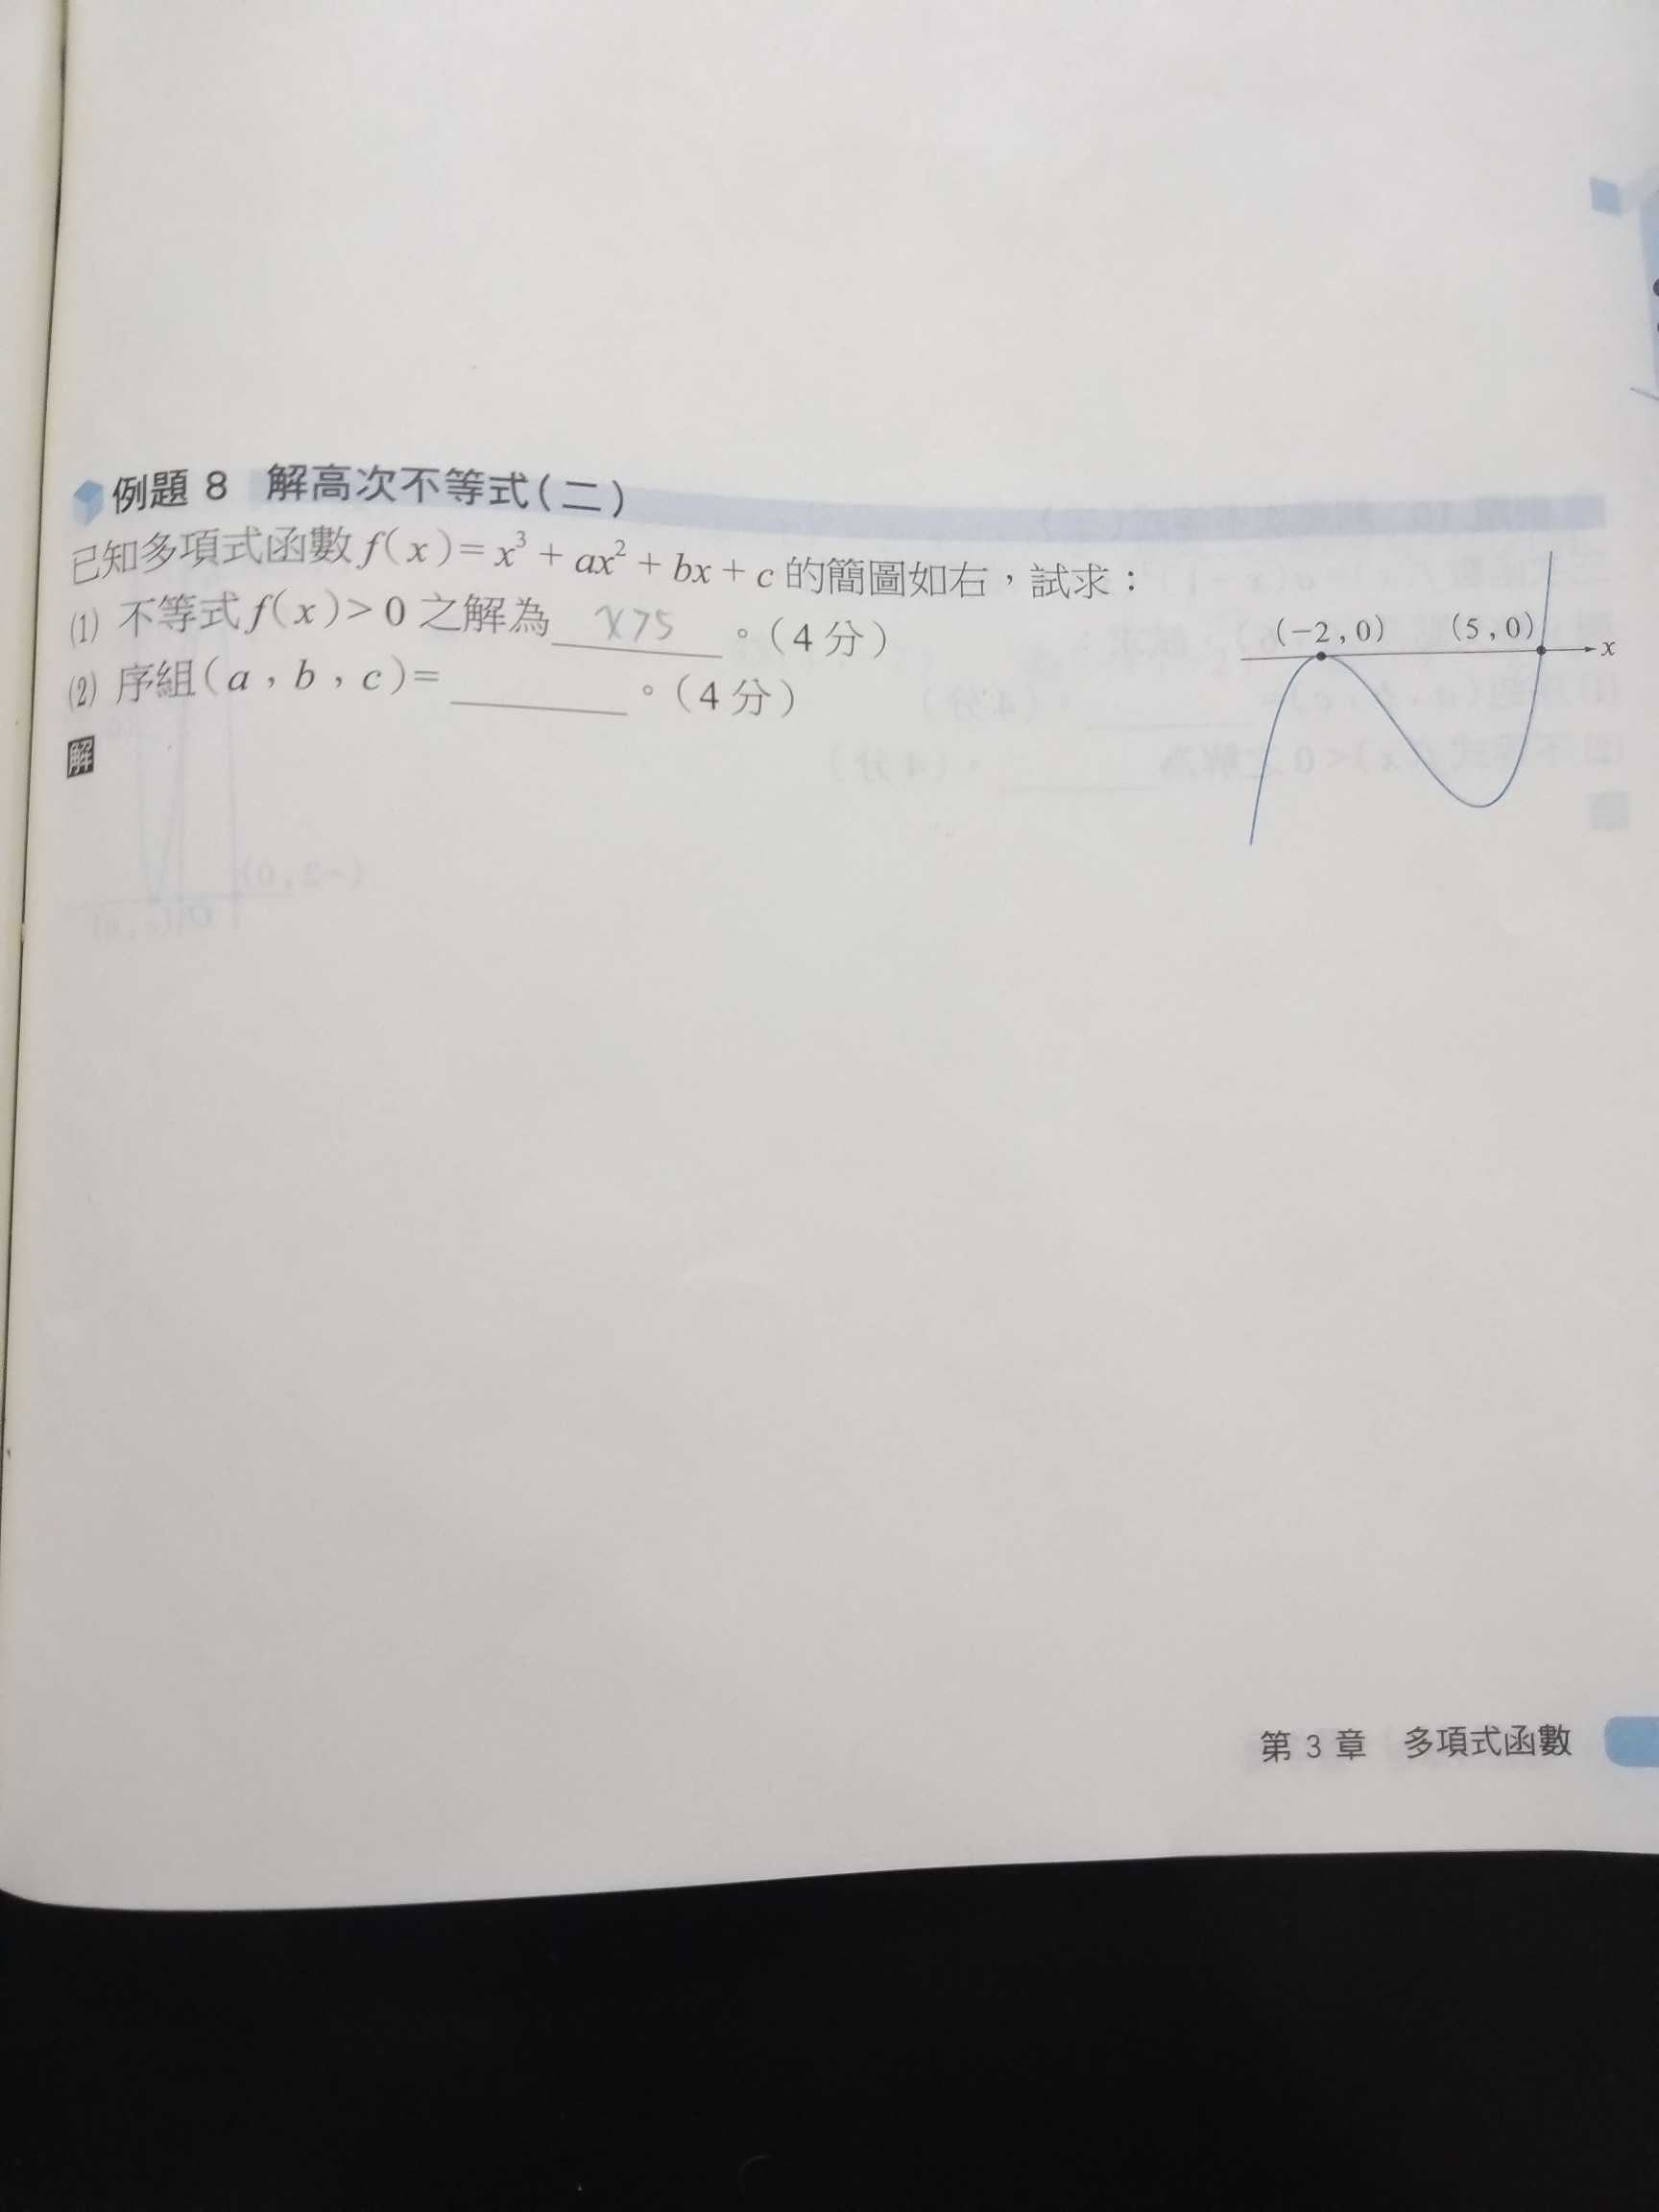 例題 8 解高次不等式(二)
已知多項式函數 f(x)=x³+ax²+bx+c 的簡圖如右，試求：
(1) 不等式 f(x)>0 之解為 x>5 。(4 分)
(2) 序組(a，b，c)=______。(4 分)
解
(-2,0) (5,0)
x
第 3 章 多項式函數